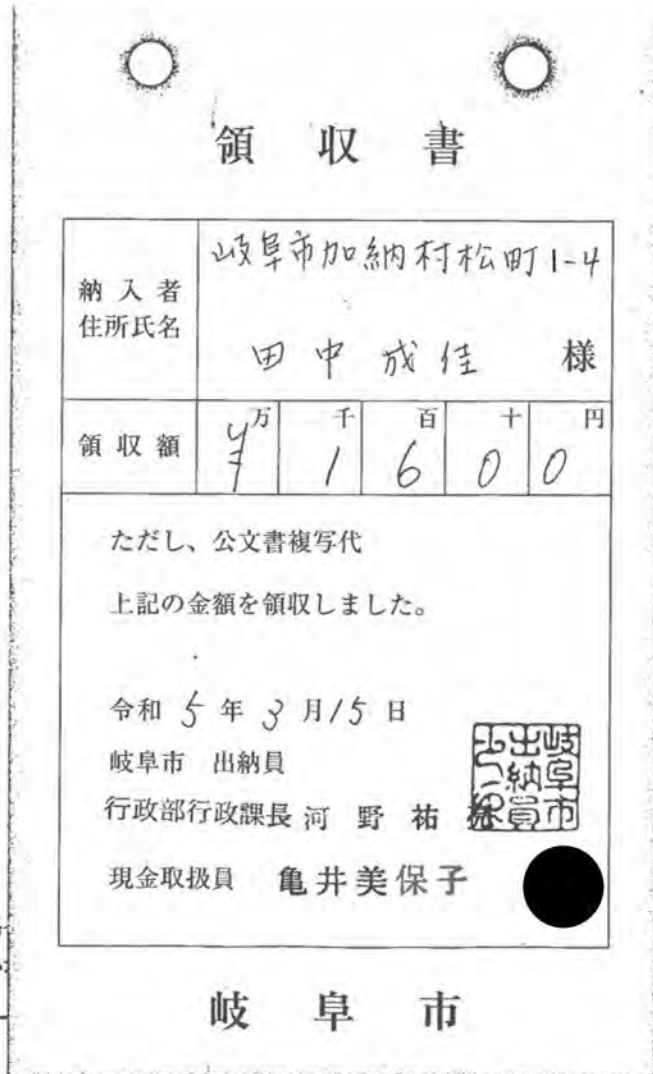 領収書
納入者
住所氏名
岐阜市加納村松町1-4
田中成佳 様
領収額
万 千 百 十 円
¥ 1 6 0 0
ただし、公文書複写代
上記の金額を領収しました。
令和 5 年 3 月 15 日
岐阜市 出納員
行政部行政課長 河野祐
岐阜市
出納員
現金取扱員 亀井美保子
岐阜市